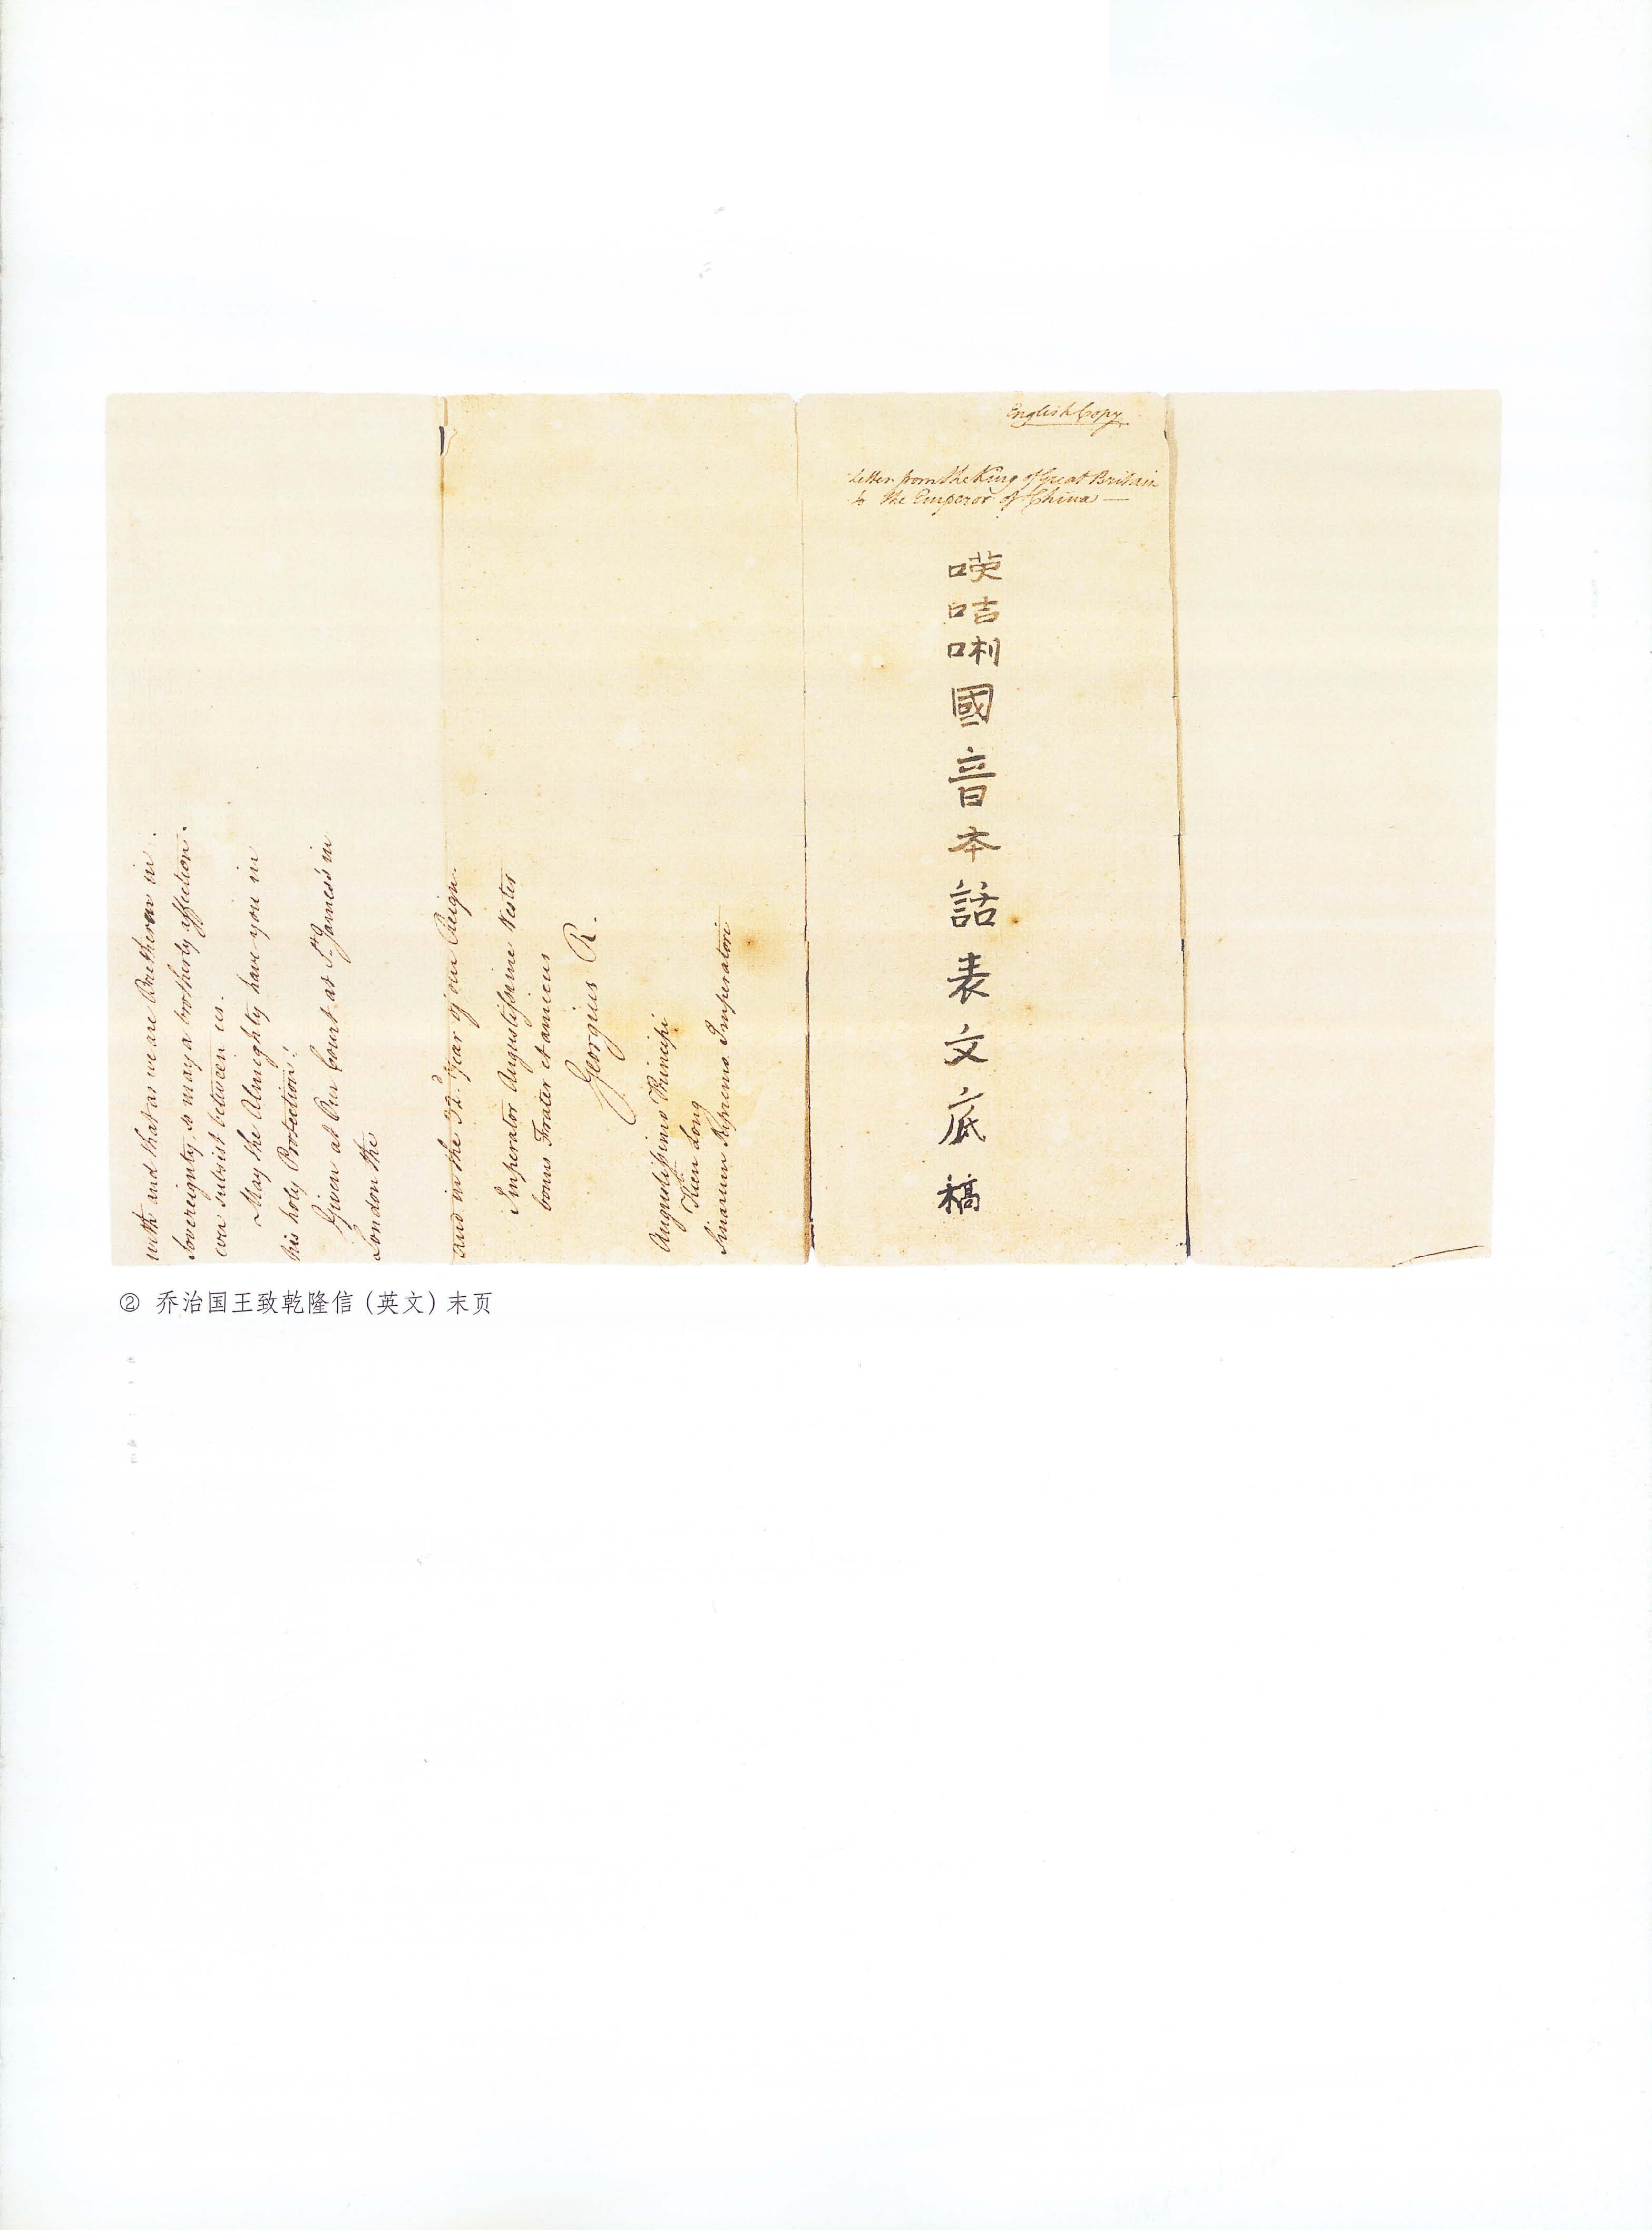 with and that as we are Brethren in
Sovereignty, so may a brotherly affection
ever subsist between us.
May the Almighty have you in
his holy Protection!
Given at Our Court at St. James's in
London the
and in the 32d. Year of our Reign.
Imperator Augustissime Vester
bonus Frater et amicus
Georgius R.
Augustissimo Principi
Kien Long
Sinarum Supremo Imperatori
English Copy
Letter from the King of Great Britain
to the Emperor of China —
𠸄咭唎國音本話表文底稿
② 乔治国王致乾隆信（英文）末页